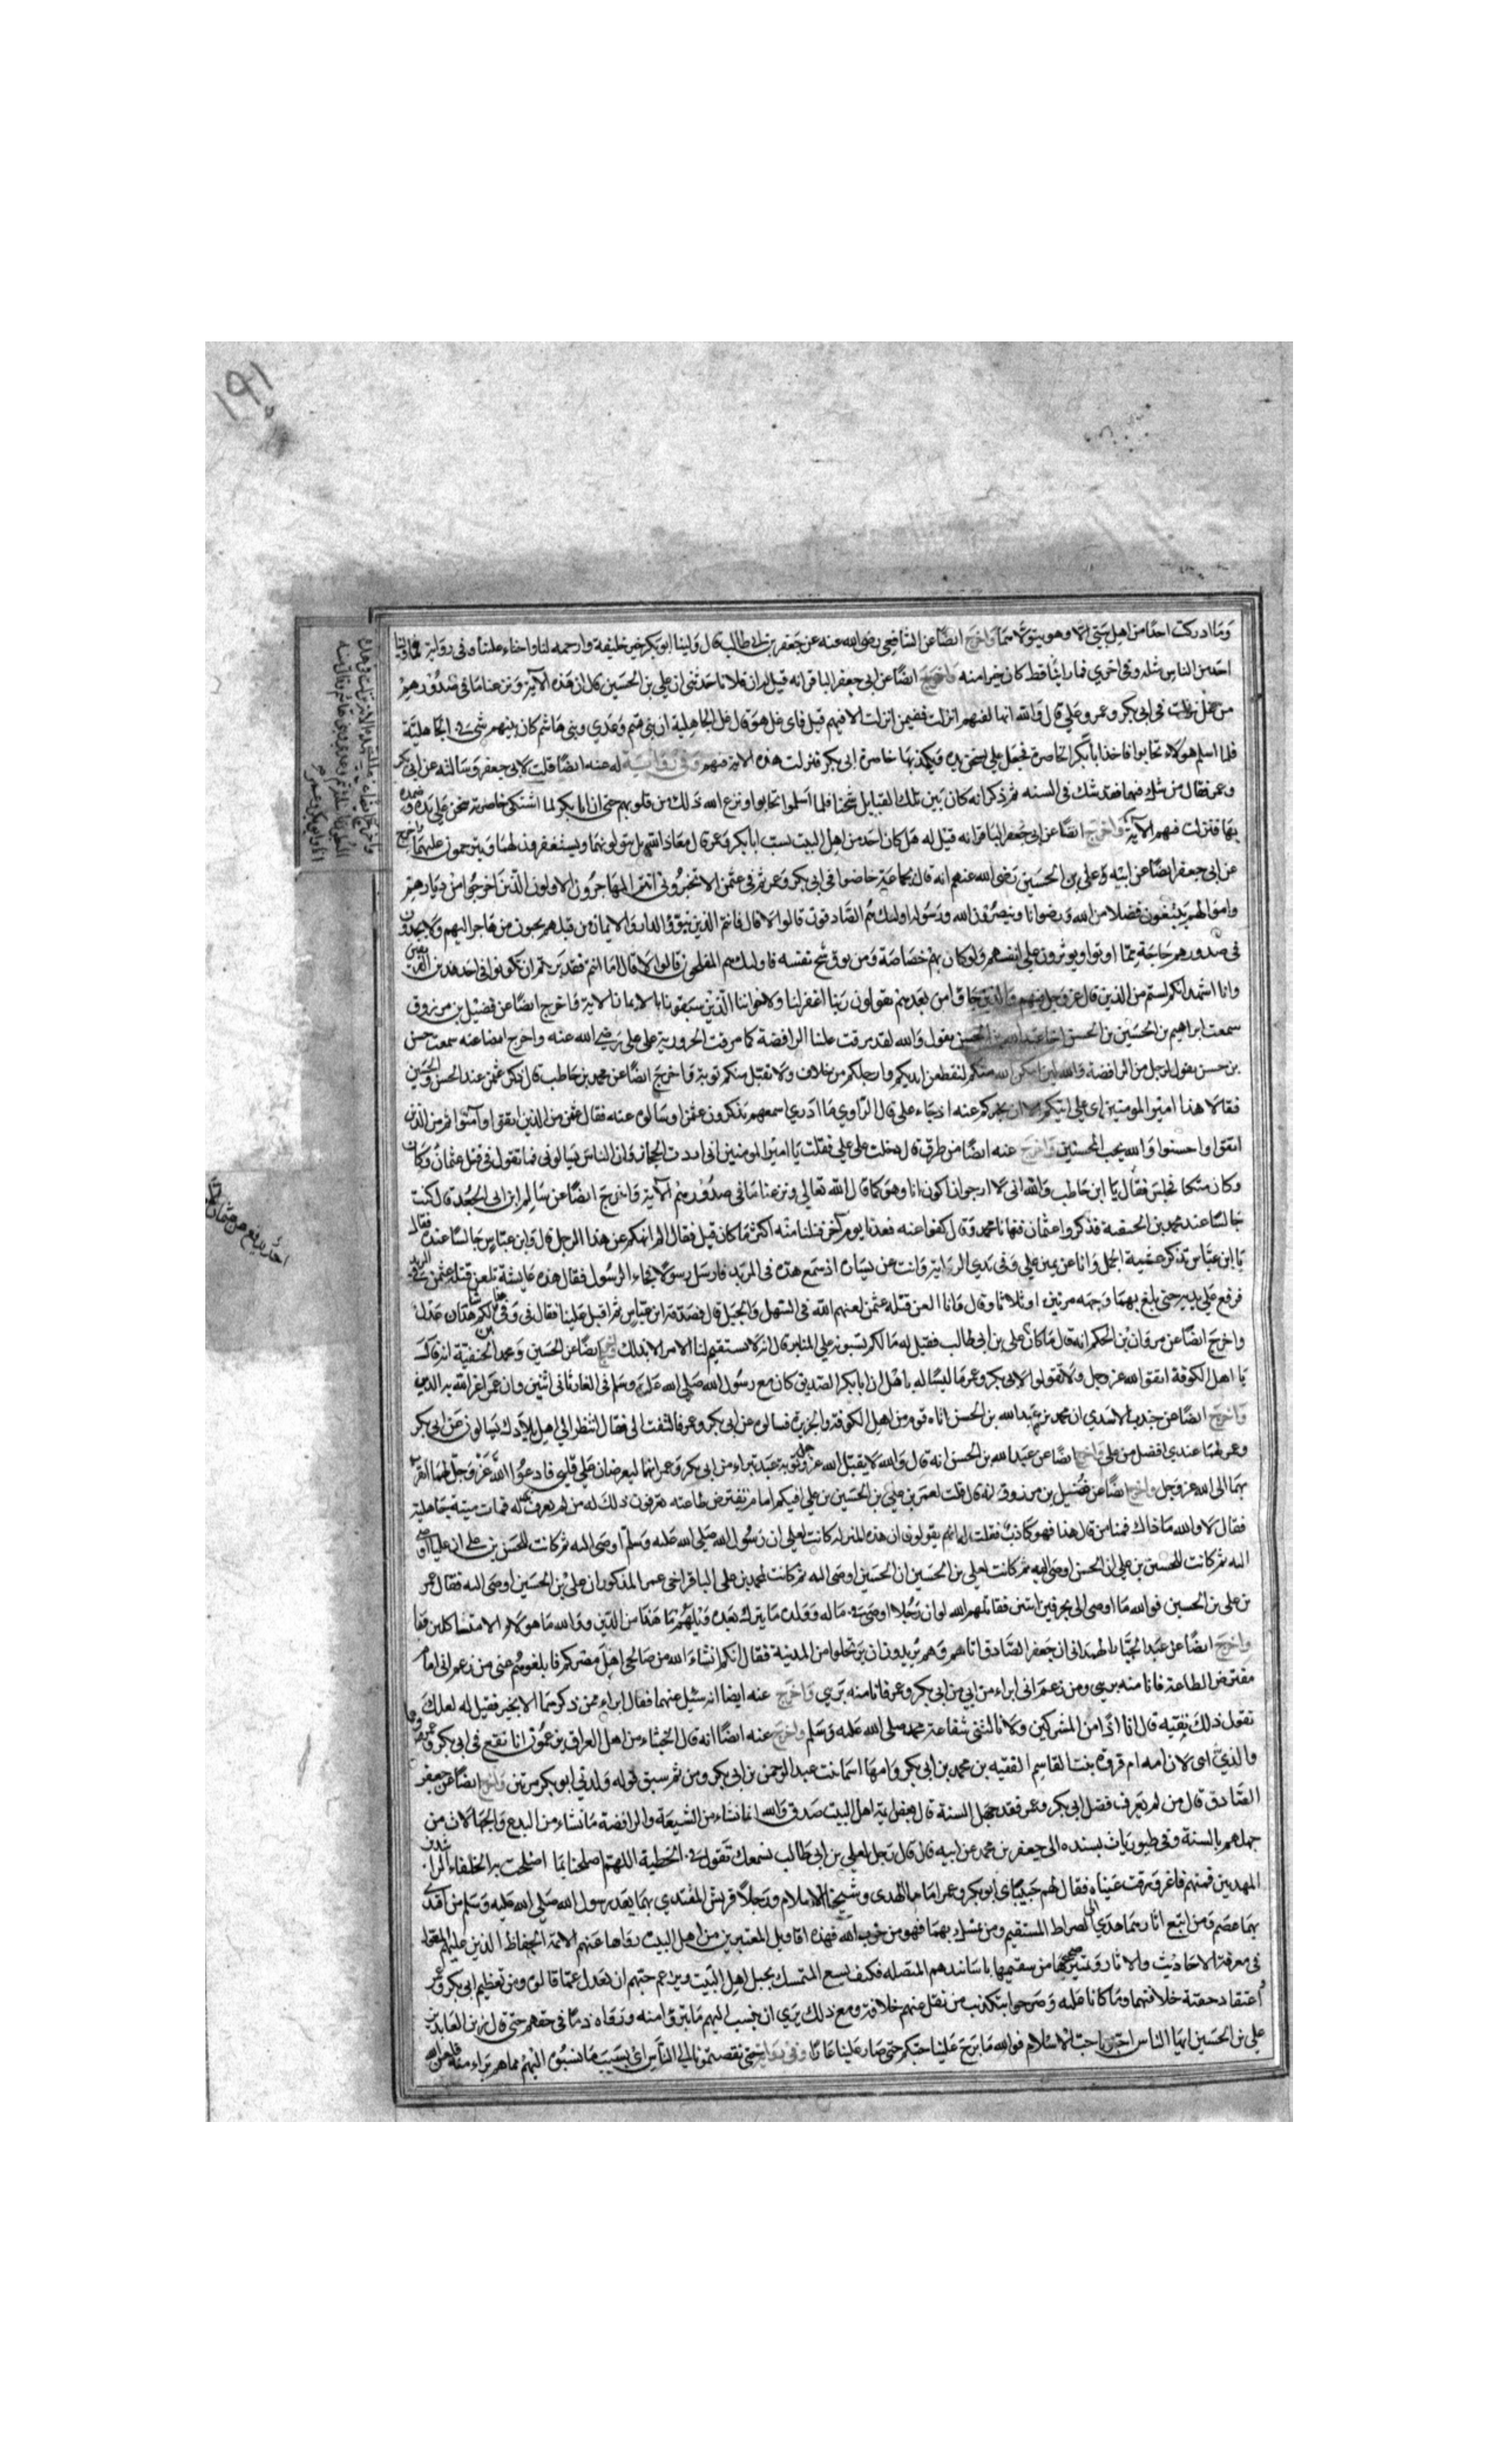 ١٩١
وما ادركت احدا من اهل بيتي الا وهو يتولاهما واخرج ايضا عن الشافعي رضي الله عنه عن جعفر بن ابي طالب قال ولينا ابو بكر خير خليفة وارحمه لنا واحناه علينا وفي رواية فما ولينا
احد من الناس مثله وفي اخري فما راينا قط كان خيرا منه واخرج ايضا عن ابي جعفر الباقر انه قيل له ان فلانا حدثني ان علي بن الحسين قال ان هذه الآية ونزعنا ما في صدورهم
من غل نزلت في ابي بكر وعمر وعلي قال والله انها لفيهم انزلت ففيمن انزلت الا فيهم قيل فاي غل هو قال غل الجاهلية ان بني تيم وعدي وبني هاشم كان بينهم شئ في الجاهلية
فلما اسلم هؤلاء تحابوا فاخذ ابا بكر الخاصرة فجعل علي يسخن يده ويكمد بها خاصرة ابي بكر فنزلت هذه الاية فيهم وفي رواية له عنه ايضا قلت لابي جعفر وسالته عن ابي بكر
وعمر فقال من شك فيهما فقد شك في السنه ثم ذكر انه كان بين تلك القبايل شحنا فلما اسلموا تحابوا ونزع الله ذلك من قلوبهم حتى ان ابا بكر لما اشتكى خاصرته سخن علي يده وضمده
بها فنزلت فيهم الآية واخرج ايضا عن ابي جعفر الباقر انه قيل له هل كان احد من اهل البيت يسب ابا بكر وعمر قال معاذ الله بل يتولونهما ويستغفرون لهما ويترحمون عليهما واخرج
عن ابي جعفر ايضا عن ابيه علي بن الحسين رضي الله عنهم انه قال لجماعة خاضوا في ابي بكر وعمر ثم في عثمن الا تخبروني انتم المهاجرون الاولون الذين اخرجوا من ديارهم
واموالهم يبتغون فضلا من الله ورضوانا وينصرون الله ورسوله اولئك هم الصادقون قالوا لا قال فانتم الذين تبوؤا الدار والايمان من قبلهم يحبون من هاجر اليهم ولا يجدون
في صدورهم حاجة مما اوتوا ويوثرون علي انفسهم ولو كان بهم خصاصة ومن يوق شح نفسه فاولئك هم المفلحون قالوا لا قال اما انتم فقد برئتم ان تكونوا في احد هذين الفريقين
وانا اشهد انكم لستم من الذين قال عز وجل فيهم والذين جاؤا من بعدهم يقولون ربنا اغفر لنا ولاخواننا الذين سبقونا بالايمان الاية واخرج ايضا عن فضيل بن مرزوق
سمعت ابراهيم بن الحسين بن الحسن اخا عبد الله بن الحسن يقول والله لقد مرقت علينا الرافضة كما مرقت الحرورية على علي رضي الله عنه واخرج ايضا عنه سمعت حسن
بن حسن يقول لرجل من الرافضة والله لئن امكن الله منكم لنقطعن ايديكم وارجلكم من خلاف ولا نقبل منكم توبة واخرج ايضا عن محمد بن حاطب قال ذكر عثمن عند الحسن والحسين
فقالا هذا امير المومنين اي علي اتيكم الان يخبركم عنه اذ جاء علي قال الراوي ما ادري اسمعهم يذكرون عثمن او سالوه عنه فقال عثمن من الذين اتقوا وآمنوا ثم من الذين
اتقوا واحسنوا والله يحب المحسنين واخرج عنه ايضا من طرق قال دخلت علي علي فقلت يا امير المومنين اني اردت الحجاز وان الناس يسالوني فما تقول في قتل عثمان وكان
وكان متكئا فجلس فقال يا ابن حاطب والله اني لا ارجو ان اكون انا وهو كما قال الله تعالي ونزعنا ما في صدورهم الآية واخرج ايضا عن سالم ابن ابي الجعد قال كنت
جالسا عند محمد بن الحنفية فذكروا عثمان فنهانا محمد وقال كفوا عنه فعدنا يوما آخر فنلنا منه اكثر مما كان قبل فقال الم انهكم عن هذا الرجل قال وابن عباس جالسا عنده فقال
يا ابن عباس تذكر عشية الجمل وانا عن يمين علي وفي يدي الراية وانت عن يساره اذ سمع هدة في المربد فارسل رسولا فجاء الرسول فقال هذه عايشة تلعن قتلة عثمن في المربد
فرفع علي يديه حتى بلغ بهما وجهه مرتين او ثلاثا وقال وانا العن قتلة عثمن لعنهم الله في السهل والجبل قال فصدقه ابن عباس ثم اقبل علينا فقال في وفي هذا لكم شاهدان عدلان
واخرج ايضا عن مروان بن الحكم انه قال ما كان علي بن ابي طالب فقيل له ما لكم تسبونه علي المنابر قال انه لا يستقيم لنا الامر الا بذلك واخرج ايضا عن الحسين ومحمد بن الحنفية انه قال
يا اهل الكوفة اتقوا الله عز وجل ولا تقولوا لابي بكر وعمر ما ليسا له باهل ان ابا بكر الصديق كان مع رسول الله صلي الله عليه وسلم في الغار ثاني اثنين وان عمر اعز الله به الدين
واخرج ايضا عن جندب الاسدي ان محمد بن عبد الله بن الحسن اتاه قوم من اهل الكوفة والجزيرة فسالوه عن ابي بكر وعمر فالتفت الي فقال انظر الي اهل بلادك يسالوني عن ابي بكر
وعمر لهما عندي افضل من علي واخرج ايضا عن عبد الله بن الحسن انه قال والله لا يقبل الله عز وجل توبة عبد تبراء من ابي بكر وعمر انهما ليعرضان علي قلبي فادعوا الله عز وجل لهما اتقرب
بهما الى الله عز وجل واخرج ايضا عن فضيل بن مرزوق انه قال قلت لعمر بن علي بن الحسين بن علي افيكم امام تفترض طاعته تعرفون ذلك له من لم يعرف ذلك له فمات مات ميتة جاهلية
فقال لا والله ما ذاك فينا من قال هذا فهو كاذب فقلت له انهم يقولون ان هذه المنزلة كانت لعلي ان رسول الله صلي الله عليه وسلم اوصى اليه ثم كانت للحسن بن علي ان عليا اوصى
اليه ثم كانت للحسين بن علي ان الحسن اوصى اليه ثم كانت لعلي بن الحسين ان الحسين اوصى اليه ثم كانت لمحمد بن علي الباقر اخي عمر المذكور ان علي بن الحسين اوصى اليه فقال عمر
بن علي بن الحسين فوالله ما اوصى ابي بحرفين اثنين فقاتلهم الله لو ان رجلا اوصى في ماله وولده وما يترك بعده ويلهم ما هذا من الدين والله ما هؤلاء الا متاكلين بنا
واخرج ايضا عن عبد الجبار الهمداني ان جعفر الصادق اتاهم وهم يريدون ان يرتحلوا من المدينة فقال انكم انشاء الله من صالحي اهل مصركم فابلغوهم عني من زعم اني امام
مفترض الطاعة فانا منه بري ومن زعم اني ابراء من ابي بكر وعمر فانا منه بري واخرج عنه ايضا انه سئل عنهما فقال ابراء ممن ذكرهما الا بخير فقيل له لعلك
تقول ذلك تقيه قال انا اذا من المشركين ولا نالتني شفاعة محمد صلى الله عليه وسلم واخرج عنه ايضا انه قال الخبثاء من اهل العراق يزعمون انا نقع في ابي بكر وعمر وهما
والدي اي لان امه ام فروة بنت القاسم الفقيه بن محمد بن ابي بكر وامها اسما بنت عبد الرحمن بن ابي بكر ومن ثم سبق قوله ولدني ابو بكر مرتين واخرج ايضا عن جعفر
الصادق قال من لم يعرف فضل ابي بكر وعمر فقد جهل السنة قال بعض ائمة اهل البيت صدق والله انما نشاء من الشيعة والرافضة ما نشاء من البدع والجهالات من
جهلهم بالسنة وفي طيوريات بسنده الى جعفر بن محمد عن ابيه قال قال رجل لعلي بن ابي طالب نسمعك تقول في الخطبة اللهم اصلحنا بما اصلحت به الخلفاء الراشدين
المهديين فمنهم فاغرورقت عيناه فقال هم حبيباي ابو بكر وعمر اماما الهدى وشيخا الاسلام ورجلا قريش المقتدي بهما بعد رسول الله صلي الله عليه وسلم من اقتدى
بهما عصم ومن اتبع اثارهما هدي الي الصراط المستقيم ومن تمسك بهما فهو من حزب الله فهذه اقاويل المعتبرين من اهل البيت رواها عنهم الائمة الحفاظ الذين عليهم المعول
في معرفة الاحاديث والاثار وتمييز صحيحها من سقيمها باسانيدهم المتصله فكيف يسع المتمسك بحبل اهل البيت ويزعم حبهم ان يعدل عما قالوه من تعظيم ابي بكر وعمر
اعتقاد حقية خلافتهما وما كانا عليه وصرحوا بتكذيب من نقل عنهم خلافه ومع ذلك يري ان ينسب اليهم ما تبرؤا منه وراوه ذما في حقهم حتى قال زين العابدين
علي بن الحسين ايها الناس احبونا حب الاسلام فوالله ما برح علينا حبكم حتى صار علينا عارا وفي رواية حتى نقصتمونا الي الناس اي بسبب ما نسبوه اليهم مما هم براء منه